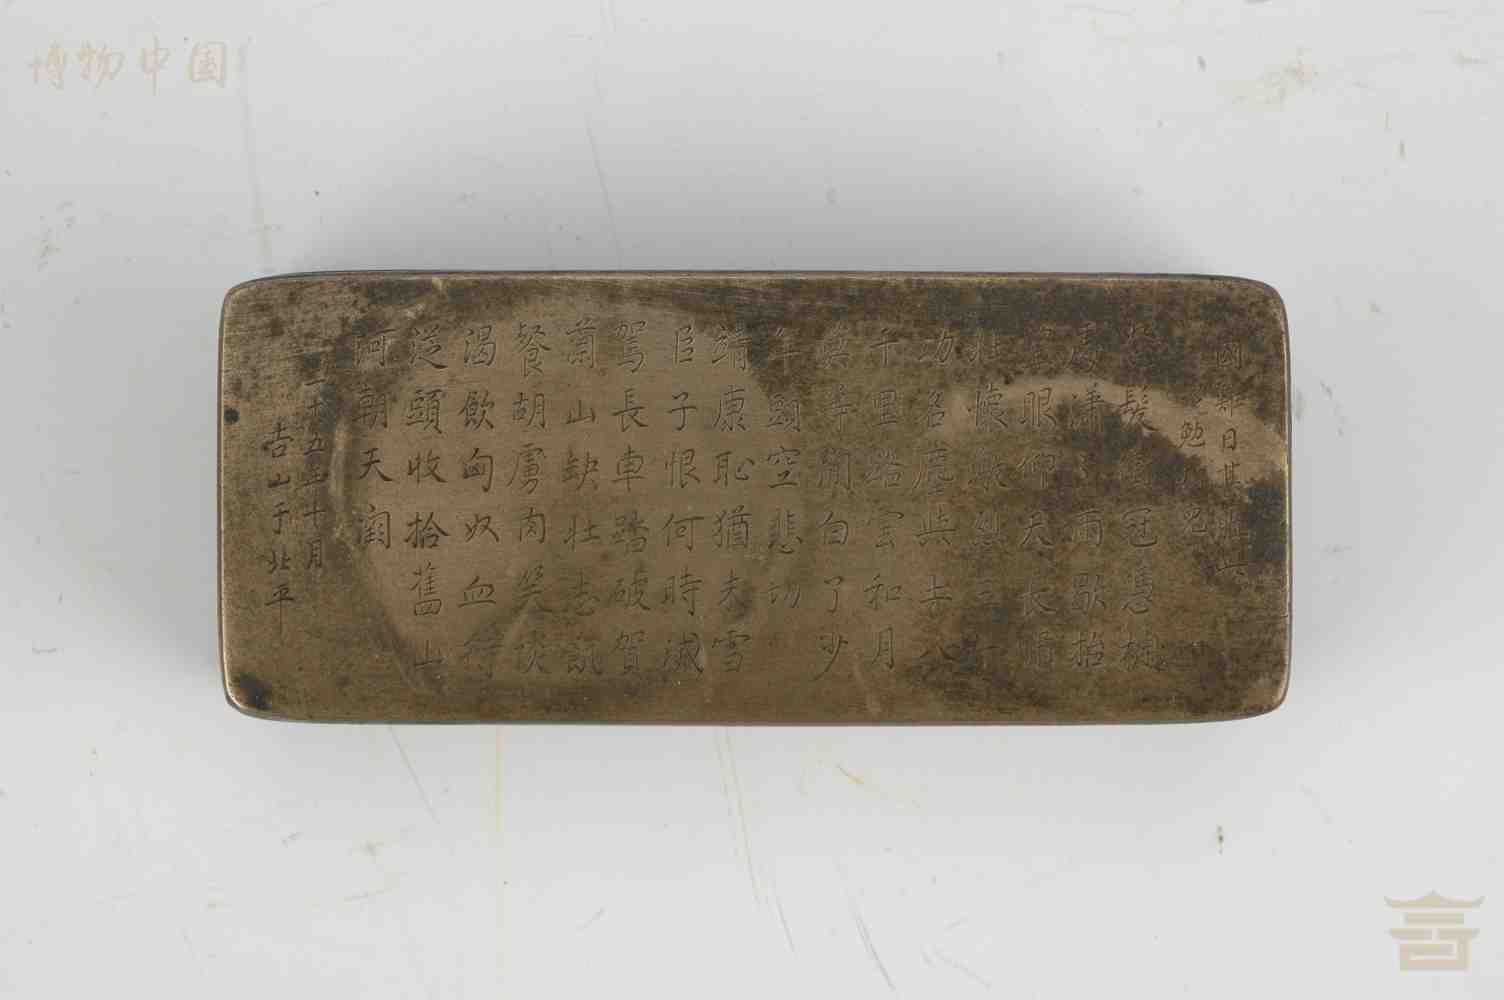 博物中国
國難日甚聊與
勉
怒髮衝冠憑欄
處瀟瀟雨歇抬
望眼仰天長嘯
壯懷激烈三十
功名塵與土八
千里路雲和月
莫等閒白了少
年頭空悲切
靖康恥猶未雪
臣子恨何時滅
駕長車踏破賀
蘭山缺壯志飢
餐胡虜肉笑談
渴飲匈奴血待
從頭收拾舊山
河朝天闕
二十五年十月
吉山于北平